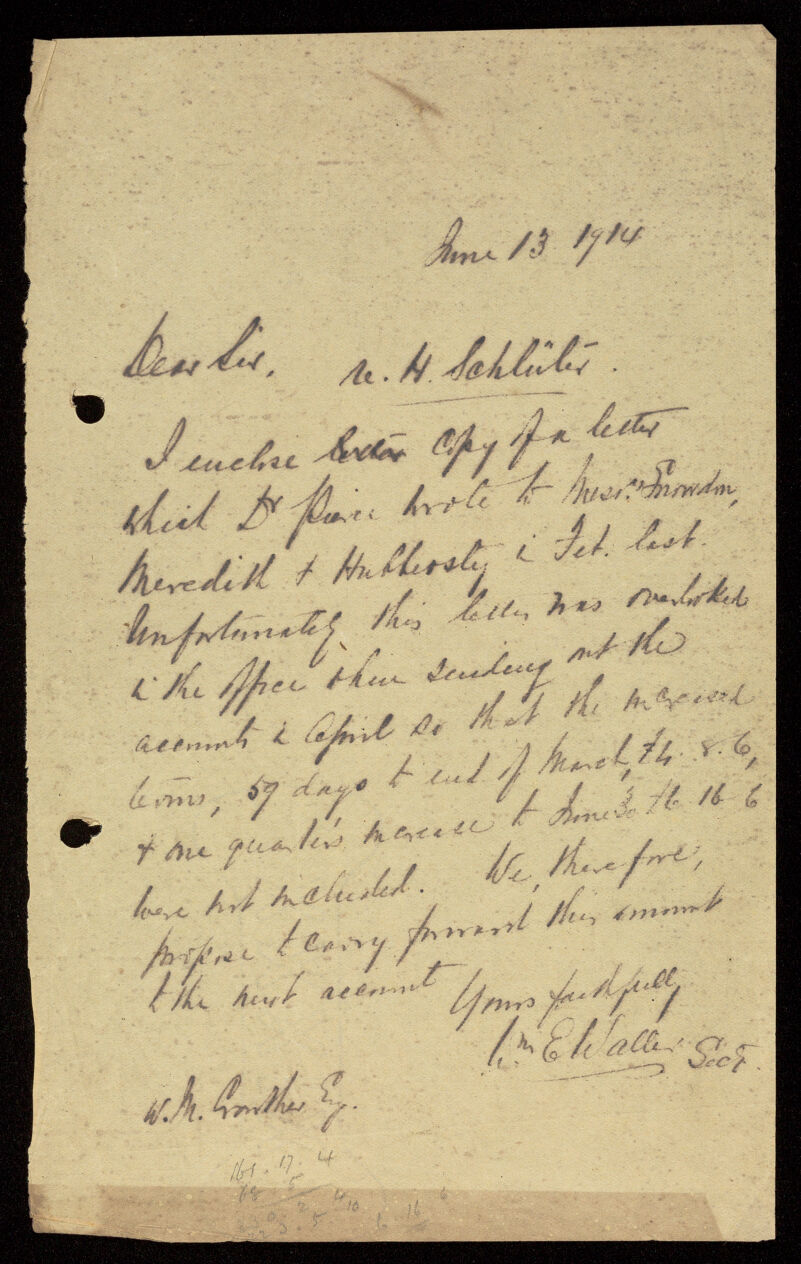 June 13 1914
Dear Sir,
re. H. Schlüter.
I enclose copy of a letter
which Dr Pierce wrote to Messrs Snowdon,
Meredith & Hubbersty in Feb. last.
Unfortunately this letter was overlooked
in the office when sending out the
accounts in April so that the increased
terms, 59 days to end of March, £4. 8. 6,
& one quarter's increase to June 30 £6 16 6
were not included. We, therefore,
propose to carry forward this amount
to the next account
Yours faithfully
Wm E Waller Secy.
W. M. Crowther Esq.
161. 17. 4
6 16 6